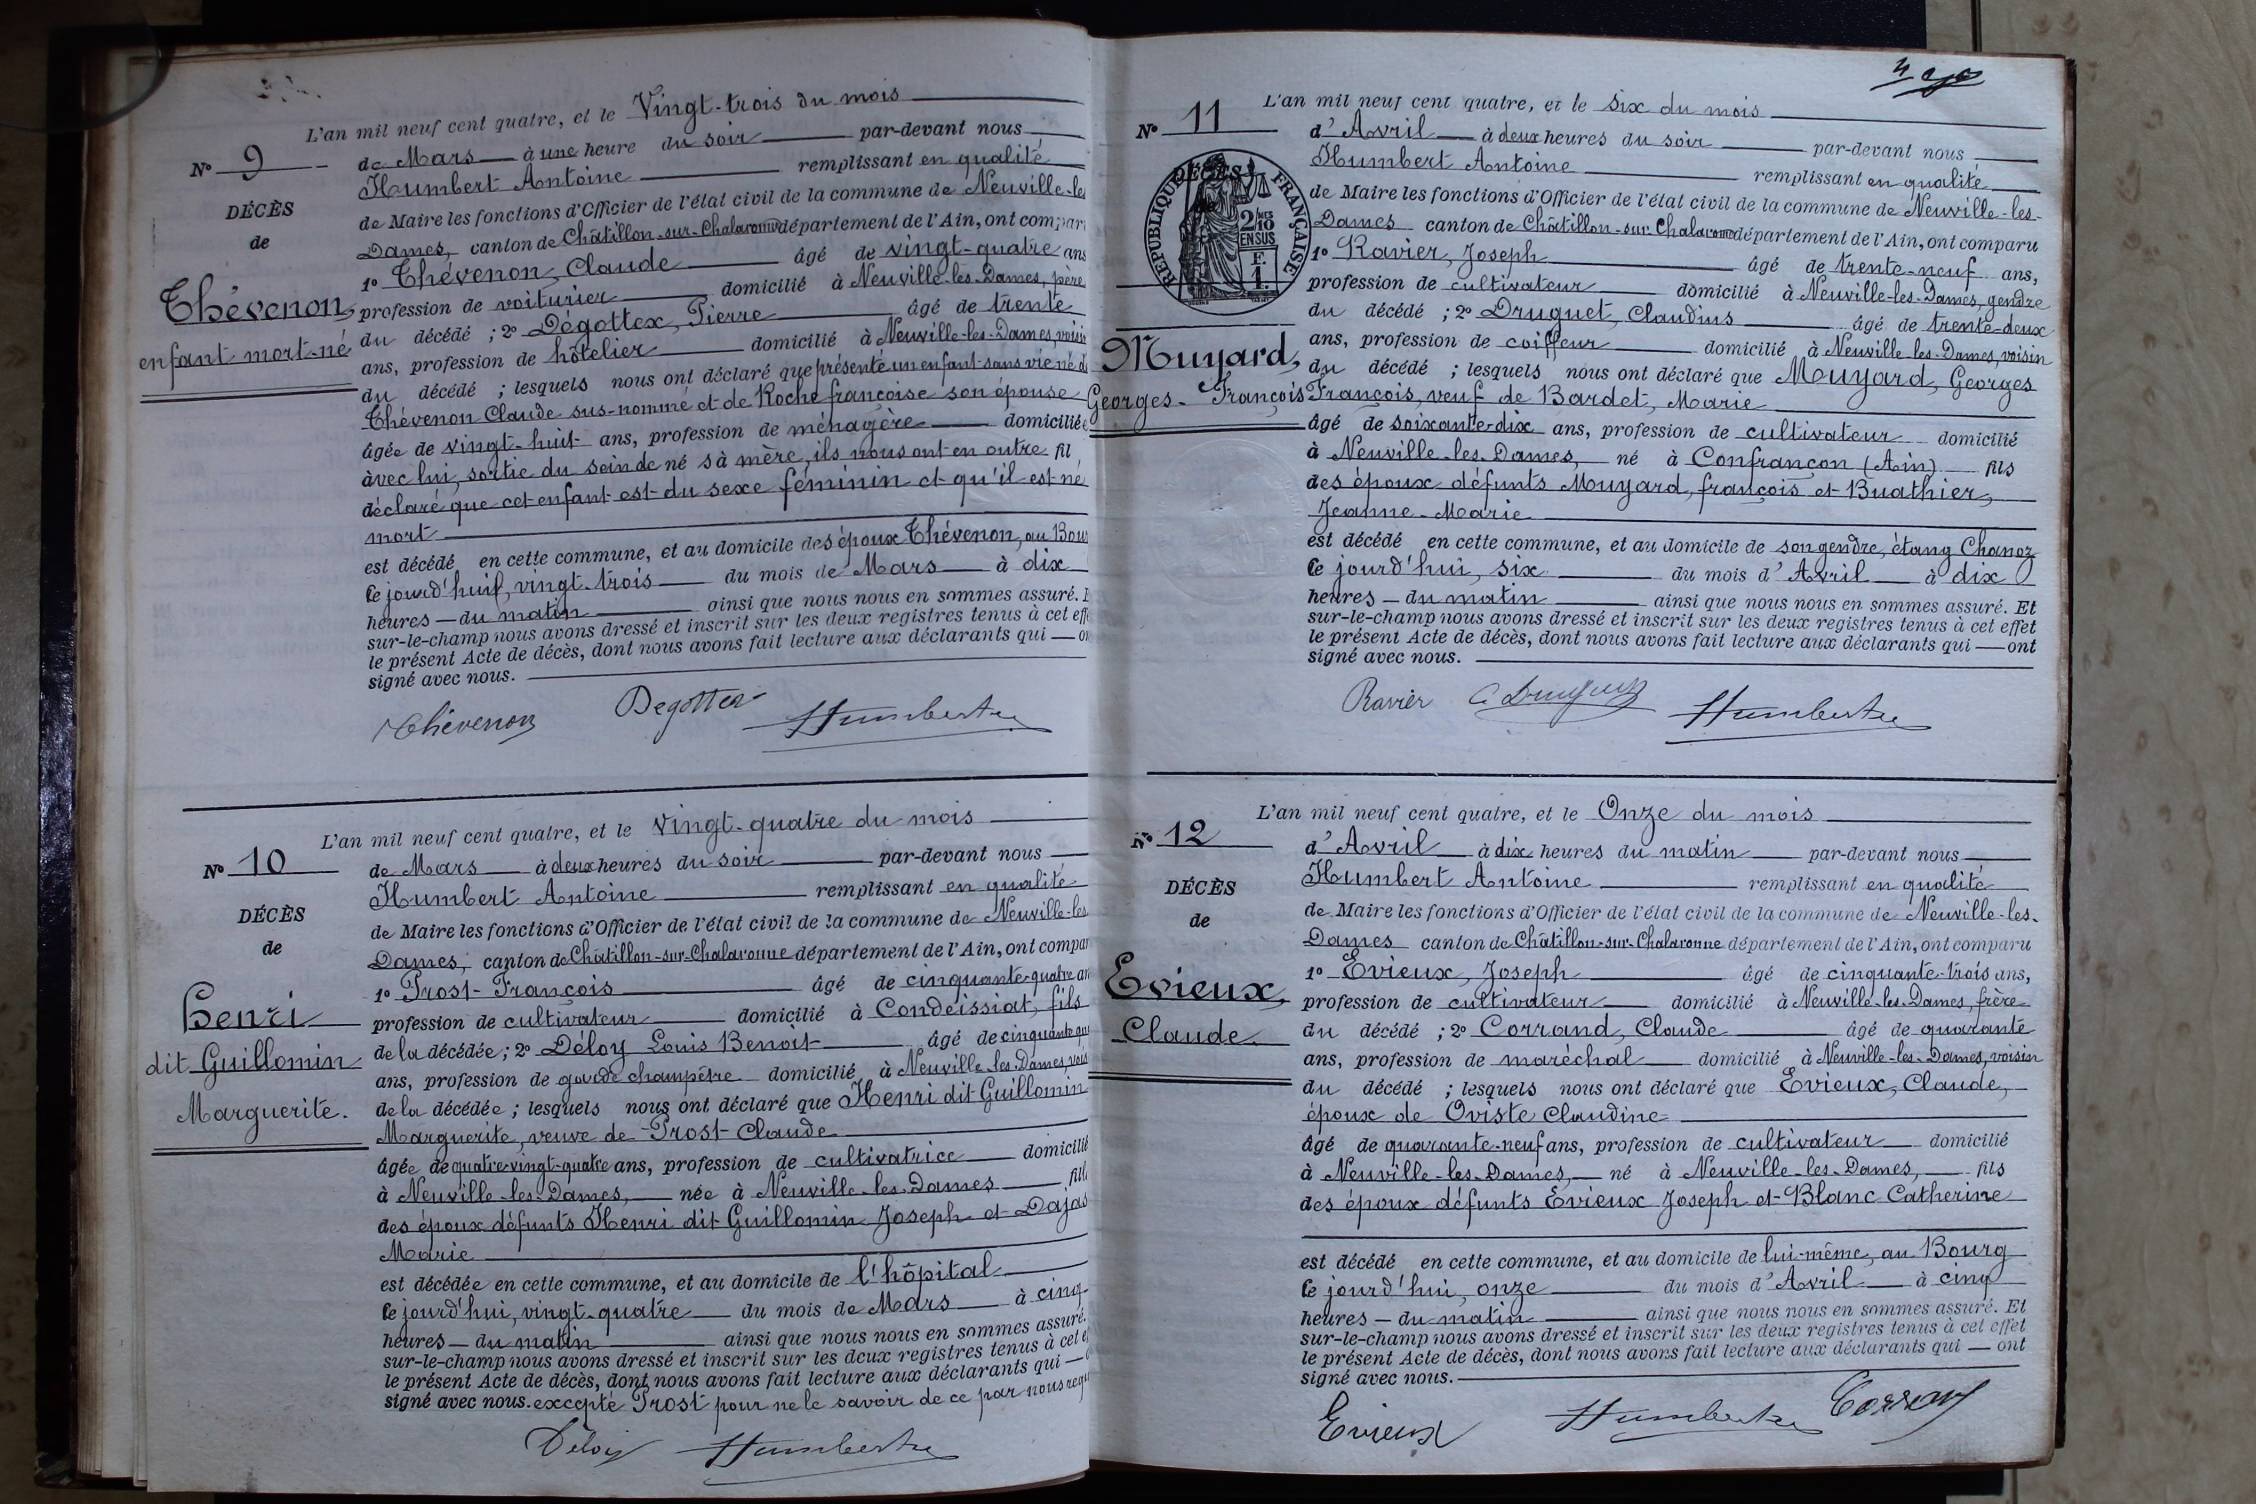 L'an mil neuf cent quatre, et le Vingt-trois du mois
N° 9
de Mars à une heure du soir par-devant nous
Humbert Antoine remplissant en qualité
DÉCÈS
de Maire les fonctions d'Officier de l'état civil de la commune de Neuville-les
de
Dames, canton de Châtillon-sur-Chalaronne département de l'Ain, ont compar
1° Thévenon, Claude âgé de vingt-quatre ans
Thévenon,
profession de voiturier domicilié à Neuville-les-Dames, père
du décédé ; 2° Dégottex, Pierre âgé de trente
enfant mort-né
ans, profession de hôtelier domicilié à Neuville-les-Dames, voisin
du décédé ; lesquels nous ont déclaré que présenté un enfant sans vie né d
Thévenon Claude sus-nommé et de Roche françoise son épouse
âgée de vingt-huit ans, profession de ménagère domiciliée
avec lui, sortie du sein de né sà mère, ils nous ont en outre fil
déclaré que cet enfant est du sexe féminin et qu'il est né
mort
est décédé en cette commune, et au domicile des époux Thévenon, au Bour
ce jourd'hui, vingt-trois du mois de Mars à dix
heures — du matin ainsi que nous nous en sommes assuré. E
sur-le-champ nous avons dressé et inscrit sur les deux registres tenus à cet effe
le présent Acte de décès, dont nous avons fait lecture aux déclarants qui — on
signé avec nous.
Thévenon Degottex Humbert
L'an mil neuf cent quatre, et le Vingt-quatre du mois
N° 10
de Mars à deux heures du soir par-devant nous
Humbert Antoine remplissant en qualité
DÉCÈS
de Maire les fonctions d'Officier de l'état civil de la commune de Neuville-les
de
Dames, canton de Châtillon-sur-Chalaronne département de l'Ain, ont compar
1° Prost François âgé de cinquante-quatre an
Henri
profession de cultivateur domicilié à Condeissiat, fils
de la décédée ; 2° Déloy Louis Benoit âgé de cinquante qua
dit Guillomin
ans, profession de garde champêtre domicilié à Neuville-les-Dames, vois
Marguerite.
de la décédée ; lesquels nous ont déclaré que Henri dit Guillomin
Marguerite, veuve de Prost Claude
âgée de quatre-vingt-quatre ans, profession de cultivatrice domicilié
à Neuville-les-Dames, née à Neuville-les-Dames fill
des époux défunts Henri dit Guillomin Joseph et Dajas
Marie
est décédée en cette commune, et au domicile de l'hôpital
ce jourd'hui, vingt-quatre du mois de Mars à cinq
heures — du matin ainsi que nous nous en sommes assuré.
sur-le-champ nous avons dressé et inscrit sur les deux registres tenus à cet e
le présent Acte de décès, dont nous avons fait lecture aux déclarants qui —
signé avec nous. excepté Prost pour ne le savoir de ce par nous requ
Déloy Humbert
L'an mil neuf cent quatre, et le Six du mois
N° 11
d'Avril à deux heures du soir par-devant nous
Humbert Antoine remplissant en qualité
DÉCÈS
RÉPUBLIQUE FRANÇAISE
2/10 MES
EN SUS
F.
1.
de Maire les fonctions d'Officier de l'état civil de la commune de Neuville-les-
Dames canton de Châtillon-sur-Chalaronne département de l'Ain, ont comparu
1° Ravier, Joseph âgé de trente-neuf ans,
profession de cultivateur domicilié à Neuville-les-Dames, gendre
du décédé ; 2° Druguet, Claudius âgé de trente-deux
Muyard,
ans, profession de coiffeur domicilié à Neuville-les-Dames, voisin
du décédé ; lesquels nous ont déclaré que Mouyard, Georges
Georges-François
François, veuf de Bardet, Marie
âgé de soixante-dix ans, profession de cultivateur domicilié
à Neuville-les-Dames, né à Confrançon (Ain) fils
des époux défunts Mouyard, françois et Buathier,
Jeanne-Marie
est décédé en cette commune, et au domicile de son gendre, étang Chanoz
ce jourd'hui, six du mois d'Avril à dix
heures — du matin ainsi que nous nous en sommes assuré. Et
sur-le-champ nous avons dressé et inscrit sur les deux registres tenus à cet effet
le présent Acte de décès, dont nous avons fait lecture aux déclarants qui — ont
signé avec nous.
Ravier C. Druguet Humbert
L'an mil neuf cent quatre, et le Onze du mois
N° 12
d'Avril à dix heures du matin par-devant nous
Humbert Antoine remplissant en qualité
DÉCÈS
de Maire les fonctions d'Officier de l'état civil de la commune de Neuville-les-
de
Dames canton de Châtillon-sur-Chalaronne département de l'Ain, ont comparu
1° Evieux, Joseph âgé de cinquante-trois ans,
Evieux,
profession de cultivateur domicilié à Neuville-les-Dames, frère
Claude
du décédé ; 2° Corrand, Claude âgé de quarante
ans, profession de maréchal domicilié à Neuville-les-Dames, voisin
du décédé ; lesquels nous ont déclaré que Evieux, Claude,
époux de Oviste Claudine
âgé de quarante-neuf ans, profession de cultivateur domicilié
à Neuville-les-Dames, né à Neuville-les-Dames, fils
des époux défunts Evieux Joseph et Blanc Catherine
est décédé en cette commune, et au domicile de lui-même, au Bourg
ce jourd'hui, onze du mois d'Avril à cinq
heures — du matin ainsi que nous nous en sommes assuré. Et
sur-le-champ nous avons dressé et inscrit sur les deux registres tenus à cet effet
le présent Acte de décès, dont nous avons fait lecture aux déclarants qui — ont
signé avec nous.
Evieux Humbert Corrand